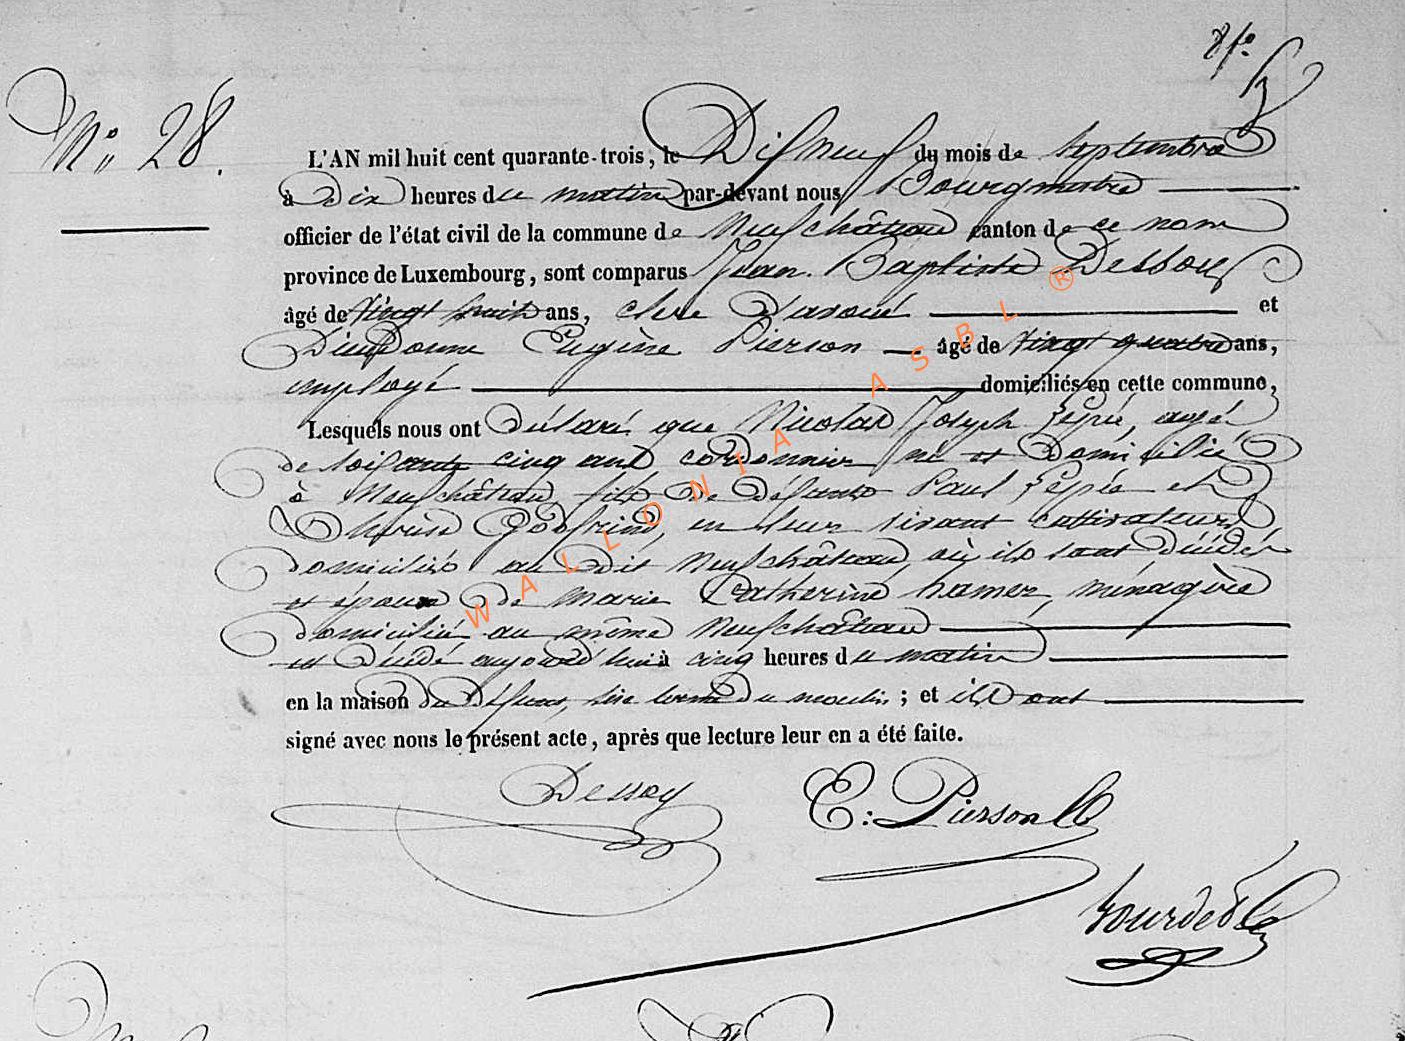 8 fo
No 28.
L'AN mil huit cent quarante-trois, le Dix neuf du mois de Septembre
à Dix heures du matin par-devant nous Bourgmestre
officier de l'état civil de la commune de Neufchâteau canton de ce nom
province de Luxembourg, sont comparus Jean Baptiste Dessoy
âgé de vingt huit ans, clerc d'avoué et
Dieudonné Eugène Pierson âgé de vingt quatre ans,
employé domiciliés en cette commune,
Lesquels nous ont déclaré que Nicolas Joseph agé
de soixante cinq ans, cordonnier né et domicilié
à Neufchâteau fils de défunts Paul et
Thérèse Godfrind, en leur vivant cultivateurs
domiciliés au dit Neufchâteau où ils sont décédés
et époux de Marie Catherine hamer, ménagère
domiciliée au même Neufchâteau
est décédé aujourd'hui à cinq heures du matin
en la maison du défunt, sise du moulin ; et ils ont
signé avec nous le présent acte, après que lecture leur en a été faite.
Dessoy
E: Pierson
WALLONIA ASBL ®